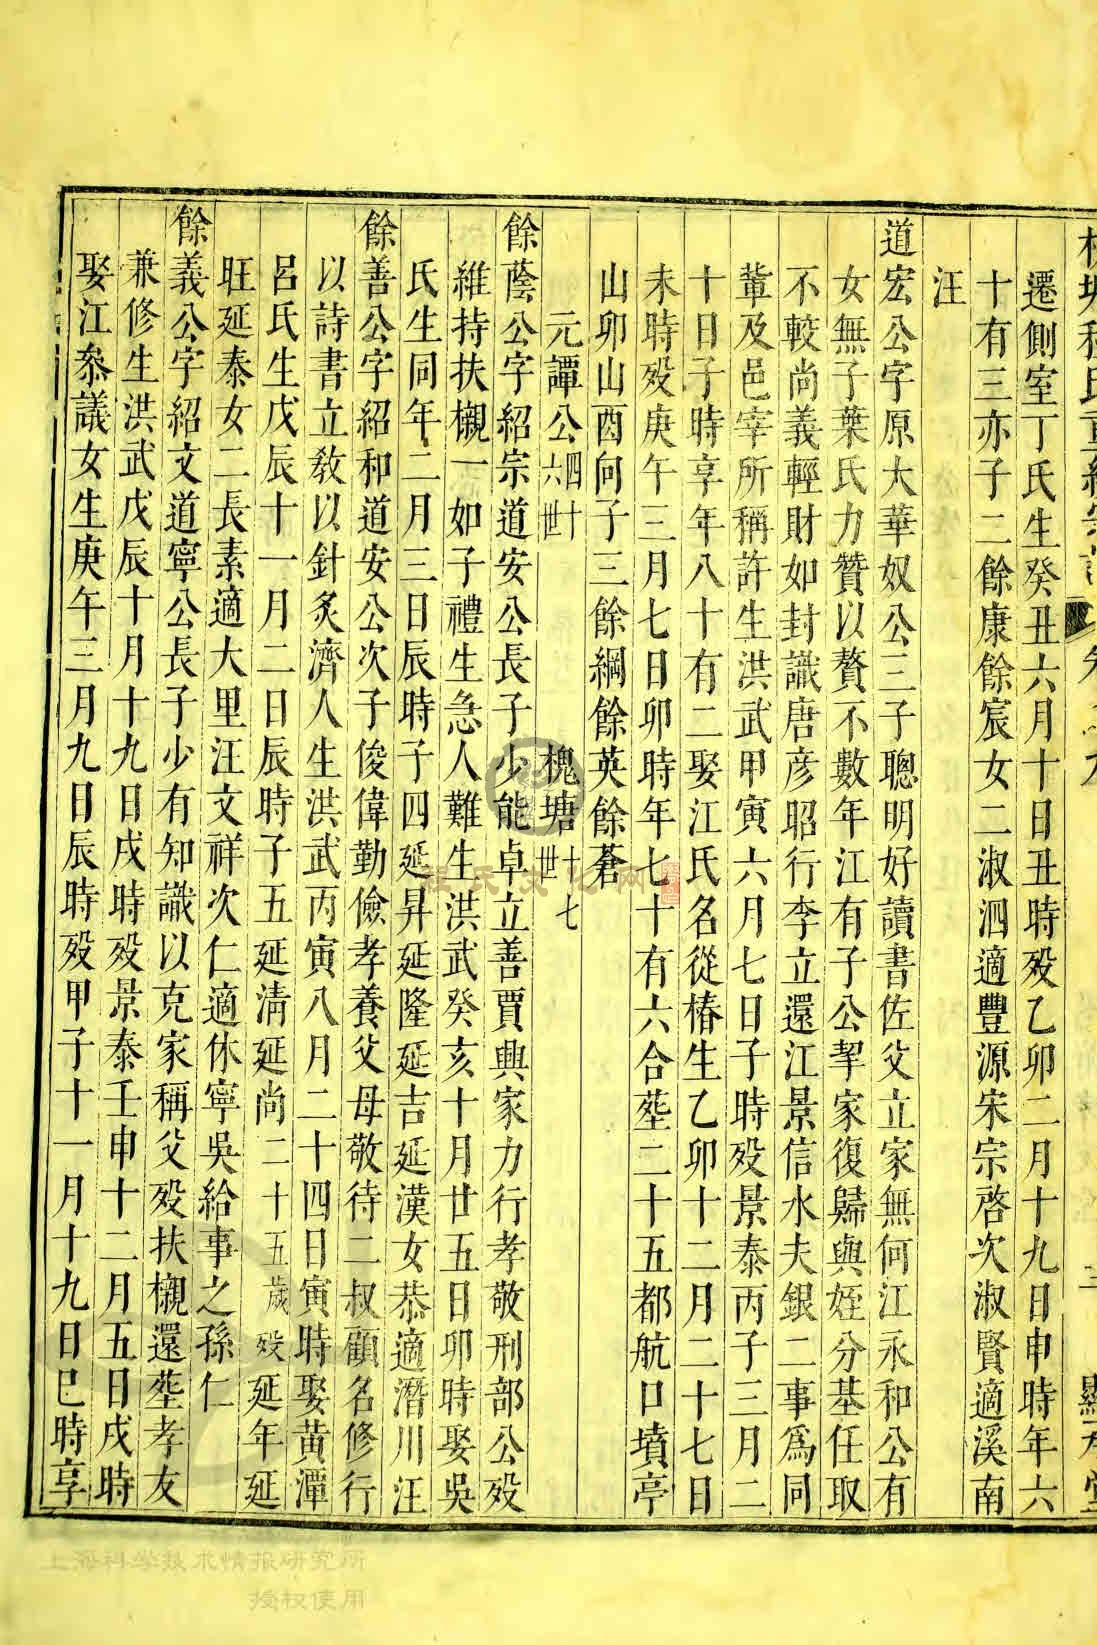 遷側室丁氏生癸丑六月十日丑時歿乙卯二月十九日申時年六
十有三亦子二餘康餘宸女二淑泗適豐源宋宗啓次淑賢適溪南
汪
道宏公字原大華奴公三子聰明好讀書佐父立家無何江永和公有
女無子葉氏力贊以贅不數年江有子公挈家復歸與姪分基任取
不較尚義輕財如封識唐彥昭行李立還江景信水夫銀二事爲同
軰及邑宰所稱許生洪武甲寅六月七日子時歿景泰丙子三月二
十日子時享年八十有二娶江氏名從椿生乙卯十二月二十七日
未時歿庚午三月七日卯時年七十有六合塟二十五都航口墳亭
山卯山酉向子三餘綱餘英餘蒼
元譚公四十六世 槐塘十七世
餘蔭公字紹宗道安公長子少能卓立善賈興家力行孝敬刑部公歿
維持扶櫬一如子禮生急人難生洪武癸亥十月廿五日卯時娶吳
氏生同年二月三日辰時子四延昇延隆延吉延漢女恭適潛川汪
餘善公字紹和道安公次子俊偉勤儉孝養父母敬待二叔顧名修行
以詩書立敎以針炙濟人生洪武丙寅八月二十四日寅時娶黄潭
呂氏生戊辰十一月二日辰時子五延淸延尚二十五歲歿延年延
旺延泰女二長素適大里汪文祥次仁適休寧吳給事之孫仁
餘義公字紹文道寧公長子少有知識以克家稱父歿扶櫬還塟孝友
兼修生洪武戊辰十月十九日戌時歿景泰壬申十二月五日戌時
娶江叅議女生庚午三月九日辰時歿甲子十一月十九日巳時享
程氏文化网
上海科学技术情报研究所
授权使用